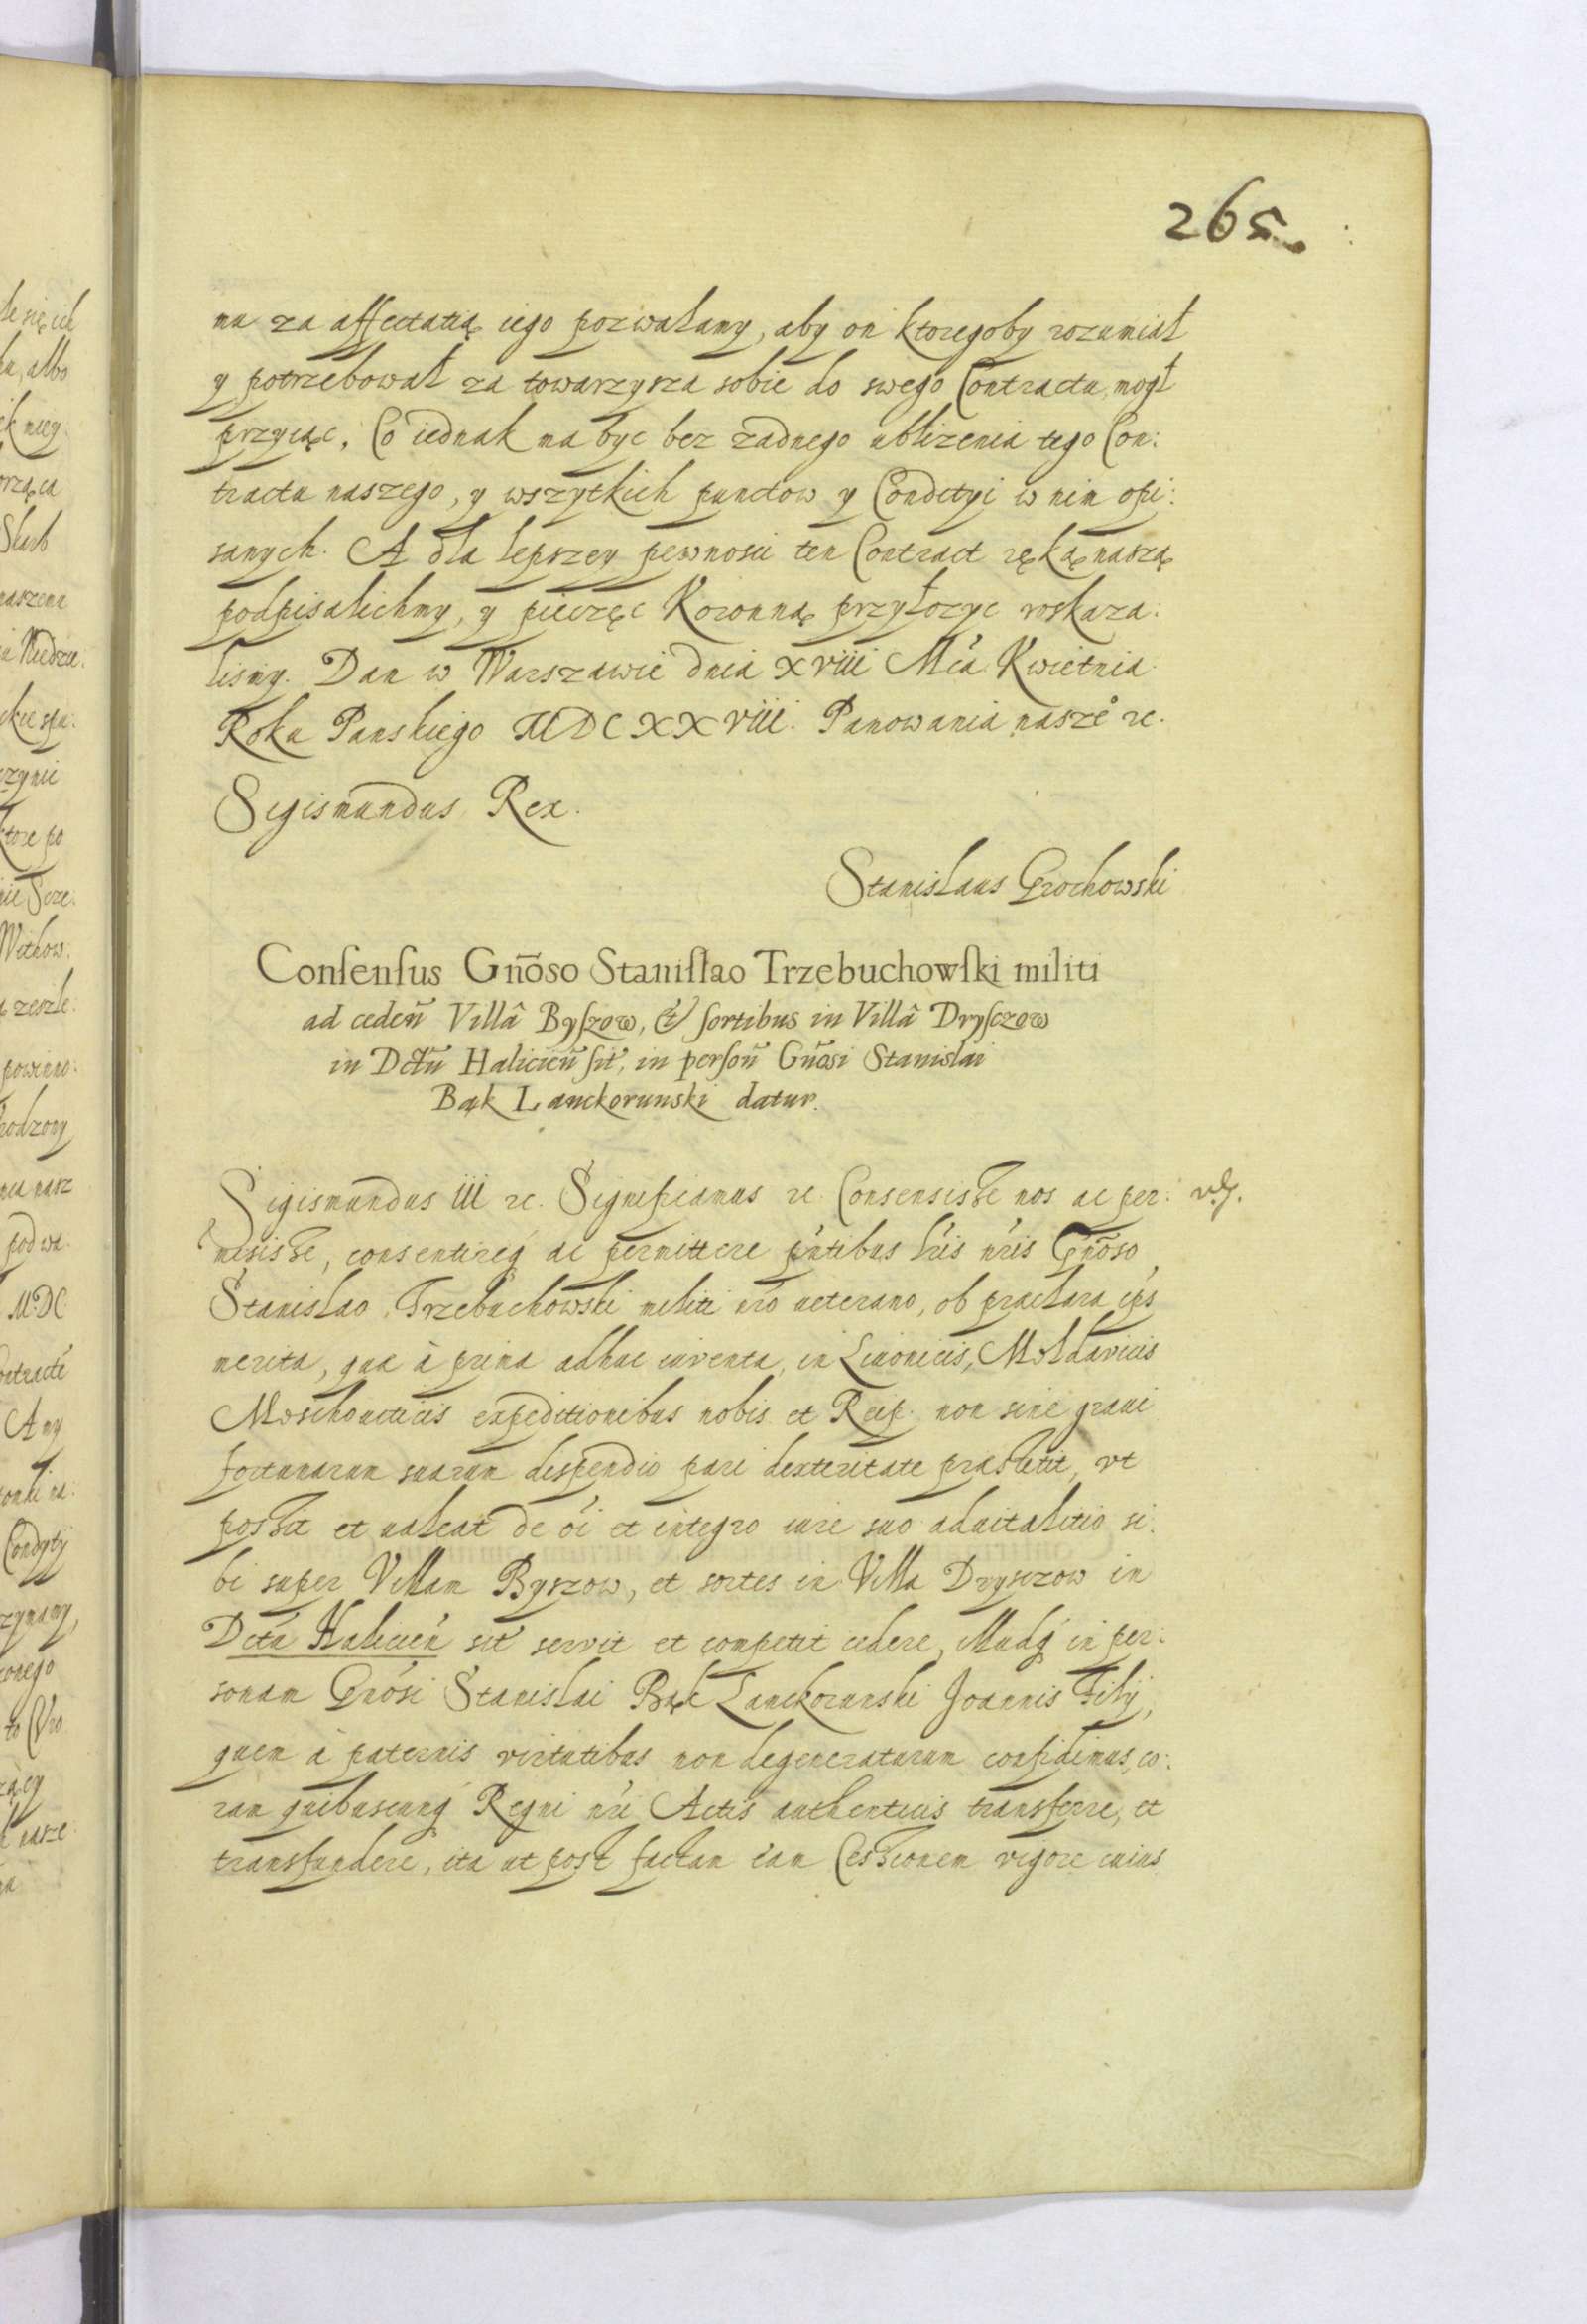 265.
mu za affectatią iego pozwalamy, aby on ktoregoby rozumiał
y potrzebował za towarzysza sobie do swego Contractu, mogł
przyiąc, Co iednak ma byc bez zadnego ublizenia tego Con:
tractu naszego, y wszytkich punctow y Condityi w nim opi:
sanych. A dla lepszey pewnosci ten Contract ręką naszą
podpisalichmy, y pieczęc Koronną przyłozyc roskaza:
lismy. Dan w Warszawie dnia xviii Mća Kwietnia
Roku Panskiego MDCXXviii. Panowania nasze° rc.
Sigismundus Rex.
Stanislaus Grochowski
Consensus Gñoso Stanislao Trzebuchowski militi
ad cedeñ Villâ Byszow, & sortibus in Villâ Drysczow
in Dctũ Halicieñ sit̃, in persoñ Gñosi Stanislai
Bąk Lanckorunski datur.
Sigismundus iii rc. Significamus rc. Consensisse nos ac per:
misisse, consentireq́ ac permittere pńtibus lŕis nŕis Gñoso
Stanislao Trzebuchowski militi nŕo ueterano, ob praeclara eps
merita, quae à prima adhuc iuventa, in Liuonicis, Moldavicis
Moschouiticis expeditionibus nobis et Reip. non sine graui
fortunarum suarum dispendio pari dexteritate praestitit, vt
possit et ualeat de oi et integro iure suo aduitalitio si:
bi super Villam Byszow, et sortes in Villa Drysczow in
Dctu Halicień sit̃ servit et competit cedere, illudq́ in per:
sonam Gnósi Stanislai Bąk Lanckorunski Joannis Filij,
quem à paternis virtutibus non degeneraturum confidimus, co:
ram quibuscunq́ Regni nŕi Actis authenticis transferre, et
transfundere, ita ut post factam eam Cessionem vigore cuius